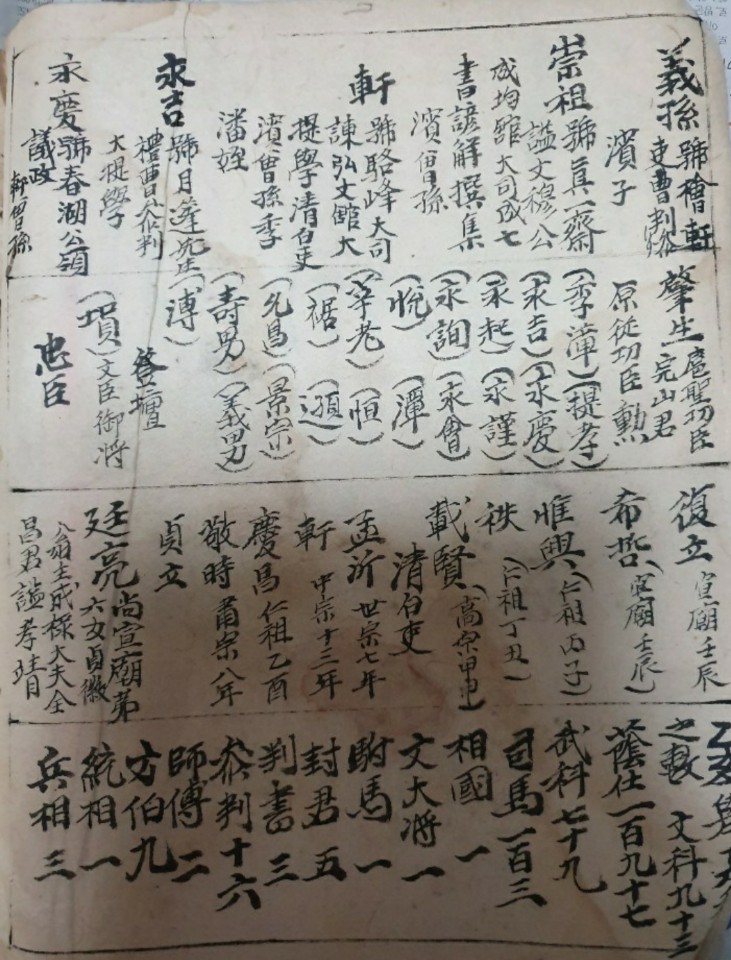 義孫 號檜軒
吏曹判
濱子
崇祖 號眞一齋
諡文穆公
成均館大司成七
書諺解撰集
濱曾孫
軒 號駱峰大司
諫弘文館大
提學清白吏
濱曾孫季
潘姪
永吉 號月篷
禮曹參判
大提學
永慶 號春湖公領
議政
軒曾孫
肇生 扈聖功臣
完山君
原從功臣勲
(季漳) (提孝)
(永吉) (永慶)
(永起) (永謹)
(永詢) (永會)
(悅) (潭)
(孝老) (恒)
(裾) (頊)
(允昌) (景宗)
(壽男) (義男)
(溥) 登壇
(塤) 文臣御将
忠臣
復立 宣廟壬辰
希哲 (宣廟壬辰)
惟興 (仁祖丙子)
秩 (仁祖丁丑)
載賢 (高宗甲申)
清白吏
孟沂 世宗七年
軒 中宗十三年
慶昌 仁祖乙酉
敬時 肅宗八年
貞立
廷亮 尚宣廟第
六女貞徽
翁主成祿大夫全
昌君諡孝靖
之數 文科九十三
蔭仕一百九十七
武科七十九
司馬一百三
相國一
文大将一
駙馬一
封君五
判書三
參判十六
師傅二
方伯九
統相一
兵相三